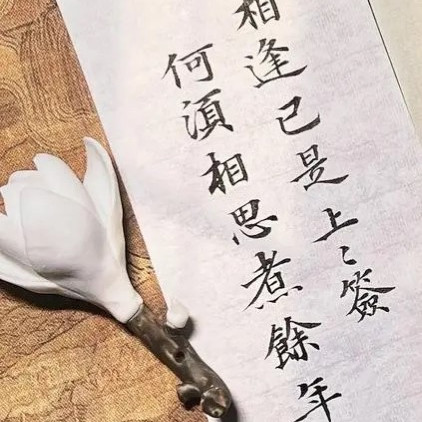 相逢已是上々簽
何須相思煮餘年